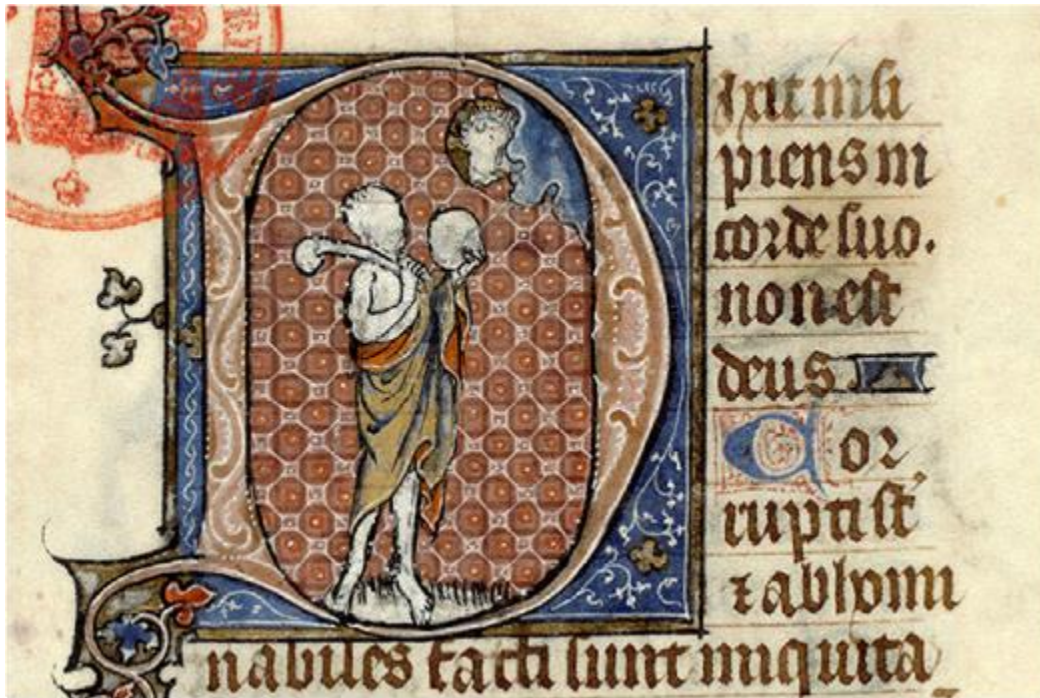 Dixit insi
piens in
corde suo.
non est
deus
Cor
rupti st̄
⁊ abhomi
nabiles facti sunt iniquita